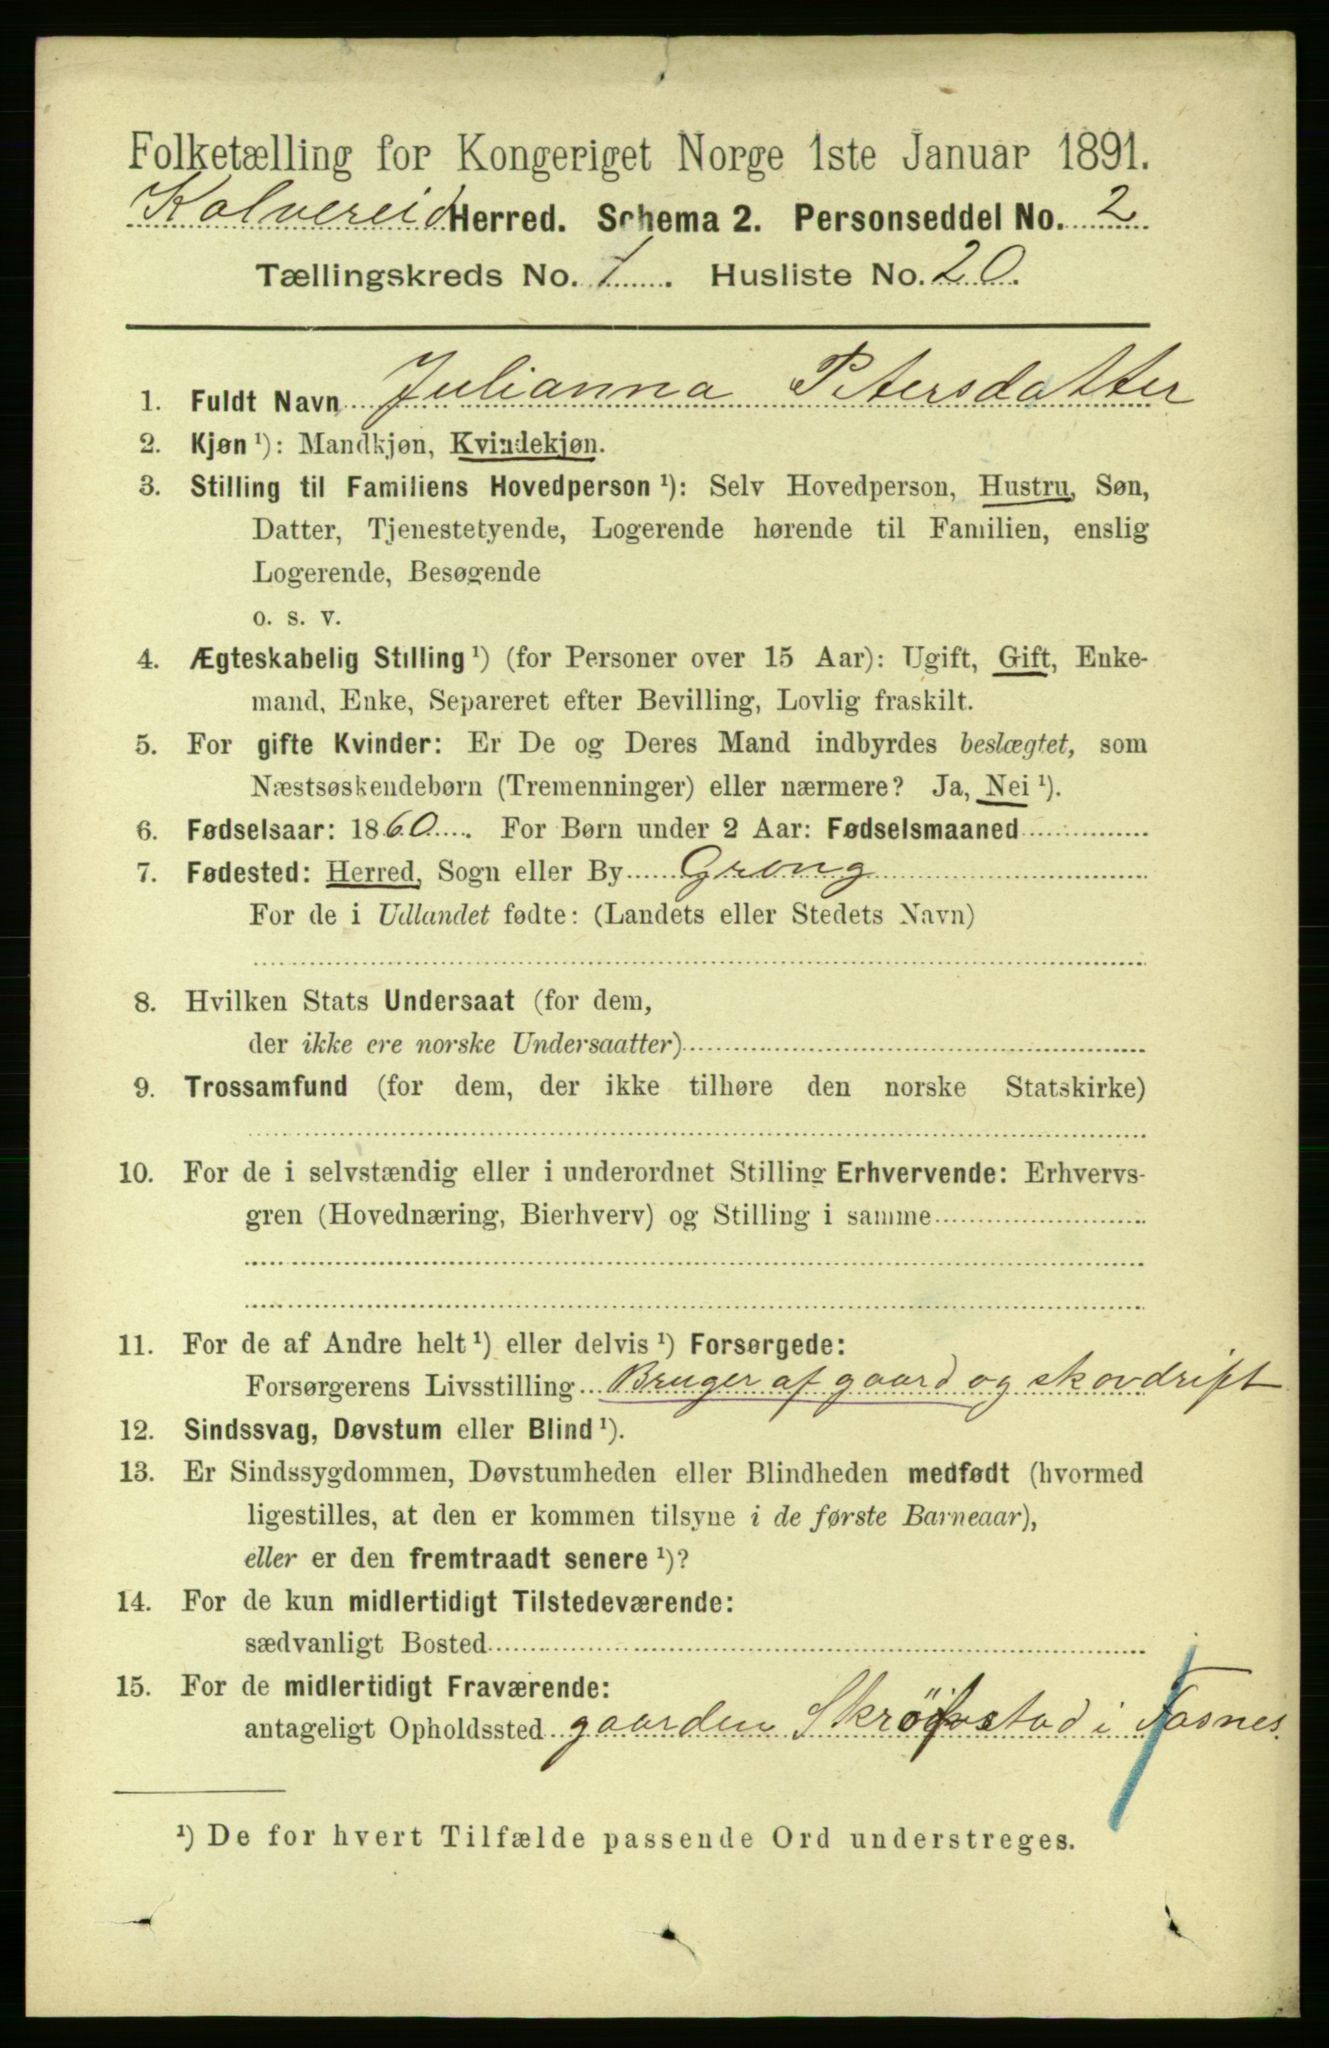 Folketælling for Kongeriget Norge 1ste Januar 1891.
Kolvereid Herred. Schema 2. Personseddel No. 2
Tællingskreds No. 1. Husliste No. 20.
1. Fuldt Navn Julianna Petersdatter
2. Kjøn ¹): Mandkjøn, Kvindekjøn.
3. Stilling til Familiens Hovedperson ¹): Selv Hovedperson, Hustru, Søn,
Datter, Tjenestetyende, Logerende hørende til Familien, enslig
Logerende, Besøgende
o. s. v.
4. Ægteskabelig Stilling ¹) (for Personer over 15 Aar): Ugift, Gift, Enke-
mand, Enke, Separeret efter Bevilling, Lovlig fraskilt.
5. For gifte Kvinder: Er De og Deres Mand indbyrdes beslægtet, som
Næstsøskendebørn (Tremenninger) eller nærmere? Ja, Nei ¹).
6. Fødselsaar: 1860. For Børn under 2 Aar: Fødselsmaaned
7. Fødested: Herred, Sogn eller By Grong
For de i Udlandet fødte: (Landets eller Stedets Navn)
8. Hvilken Stats Undersaat (for dem,
der ikke ere norske Undersaatter)
9. Trossamfund (for dem, der ikke tilhøre den norske Statskirke)
10. For de i selvstændig eller i underordnet Stilling Erhvervende: Erhvervs-
gren (Hovednæring, Bierhverv) og Stilling i samme
11. For de af Andre helt ¹) eller delvis ¹) Forsørgede:
Forsørgerens Livsstilling Bruger af gaard og skovdrift
12. Sindssvag, Døvstum eller Blind ¹).
13. Er Sindssygdommen, Døvstumheden eller Blindheden medfødt (hvormed
ligestilles, at den er kommen tilsyne i de første Barneaar),
eller er den fremtraadt senere ¹)?
14. For de kun midlertidigt Tilstedeværende:
sædvanligt Bosted
15. For de midlertidigt Fraværende:
antageligt Opholdssted gaarden i Fosnes.
¹) De for hvert Tilfælde passende Ord understreges.